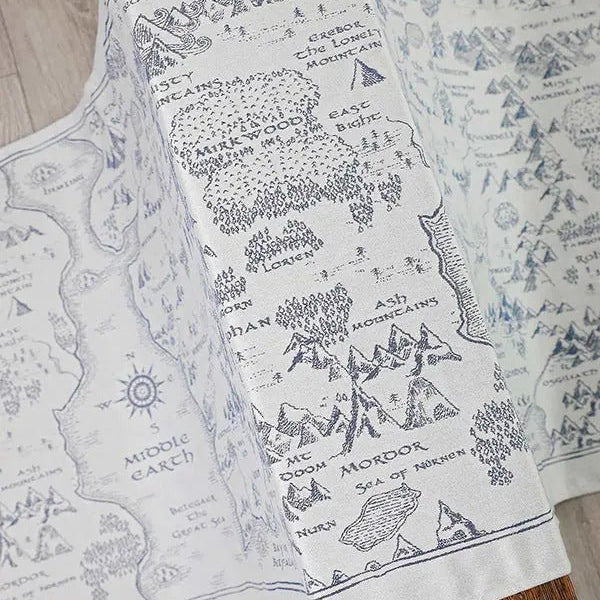 EREBOR
THE LONELY
MOUNTAIN
MISTY
MOUNTAINS
MIRKWOOD
EAST
BIGHT
LORIEN
ASH
MOUNTAINS
MT
DOOM
MORDOR
SEA OF NURNEN
NURN
N
W
E
S
MIDDLE
EARTH
BELEGAER
THE
GREAT SEA
ASH
MOUNTAINS
MORDOR
SEA OF NURNEN
MISTY
MOUNTAINS
OSGILIATH